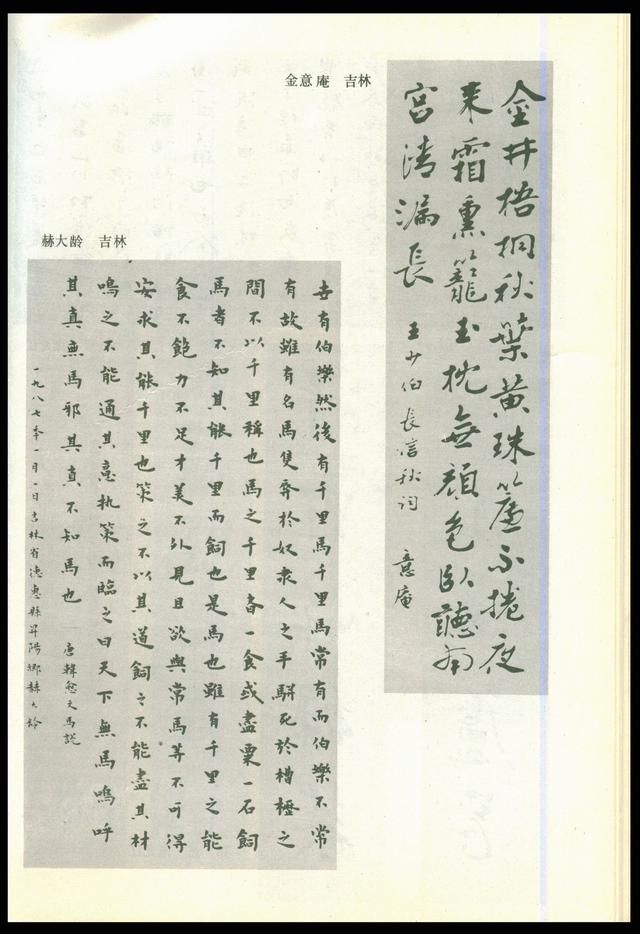 金意庵 吉林
金井梧桐秋葉黄珠簾不捲夜
来霜熏籠玉枕無顔色臥聽南
宫清漏長 王少伯長信秋词 意庵
赫大龄 吉林
世有伯樂然後有千里馬千里馬常有而伯樂不常
有故雖有名馬隻辱於奴隶人之手駢死於槽櫪之
間不以千里稱也馬之千里者一食或盡粟一石飼
馬者不知其能千里而飼也是馬也雖有千里之能
食不飽力不足才美不外見且欲與常馬等不可得
安求其能千里也策之不以其道飼之不能盡其材
鳴之不能通其意执策而臨之曰天下無馬嗚呼
其真無馬邪其真不知馬也 唐韓愈文馬説
一九八七年一月一日吉林省德惠縣昇陽鄉赫大龄